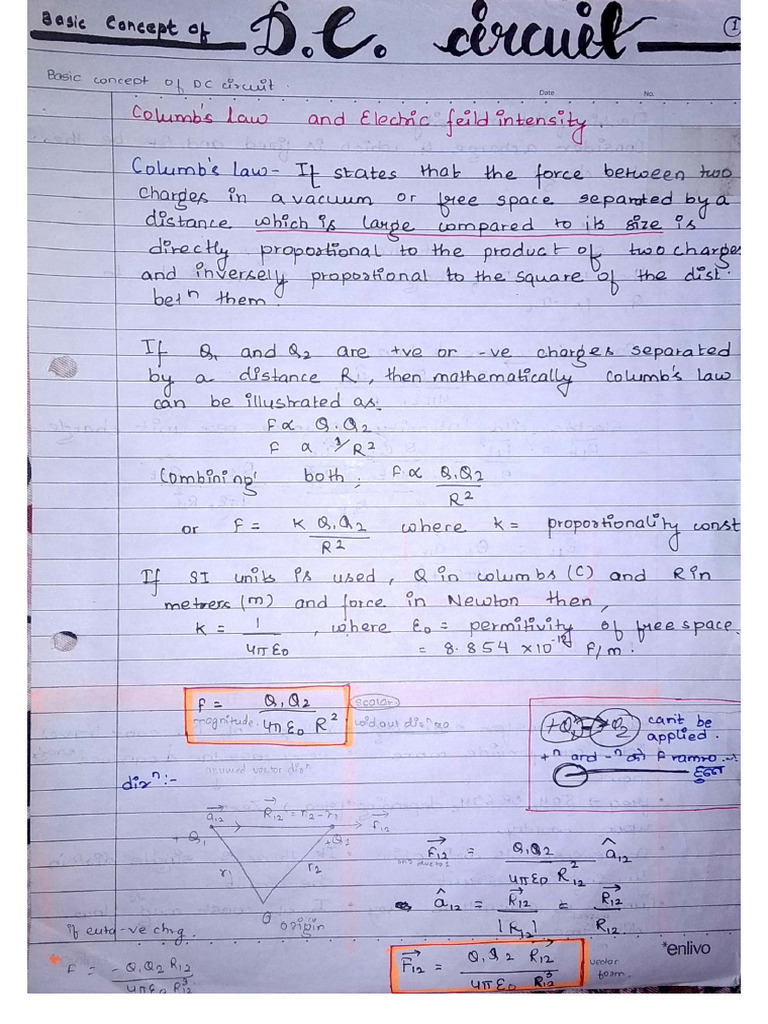 Basic Concept of D.C. circuit 1
Basic concept of DC circuit.
Date No.
Columb's Law and Electric feild intensity.
Columb's law - It states that the force between two
charges in a vacuum or free space separated by a
distance which is large compared to its size is
directly proportional to the product of two charges
and inversely proportional to the square of the dist.
betⁿ them.
If Q₁ and Q₂ are +ve or -ve charges separated
by a distance R, then mathematically Columb's law
can be illustrated as.
F ∝ Q₁.Q₂
F ∝ 1/R²
Combining both, F ∝ Q₁Q₂/R²
or F = K Q₁Q₂/R² where k = proportionality const
If SI units is used, Q in columbs (C) and R in
metrers (m) and force in Newton then,
k = 1/4πε₀, where ε₀ = permitivity of free space.
= 8.854 × 10⁻¹² F/m.
F = Q₁Q₂/4πε₀R² scalar
magnitude.
+Q₁ +Q₂ can't be
applied.
+ⁿ and -ⁿ को F ramro
हुन्न
dirⁿ:-
assumed vector dirⁿ
a₁₂→ R₁₂→ = r₂-r₁ F₁₂→
+Q₁ +Q₂
r₁ r₂
O origin
F₁₂→ = Q₁Q₂/4πε₀R₁₂² â₁₂
on 2 due to 1
â₁₂ = R₁₂→/|R₁₂| = R₁₂→/R₁₂
if euta -ve chrg.
F = -Q₁Q₂R₁₂/4πε₀R₁₂³
F₁₂→ = Q₁Q₂R₁₂→/4πε₀R₁₂³ vector
form.
*enlivo